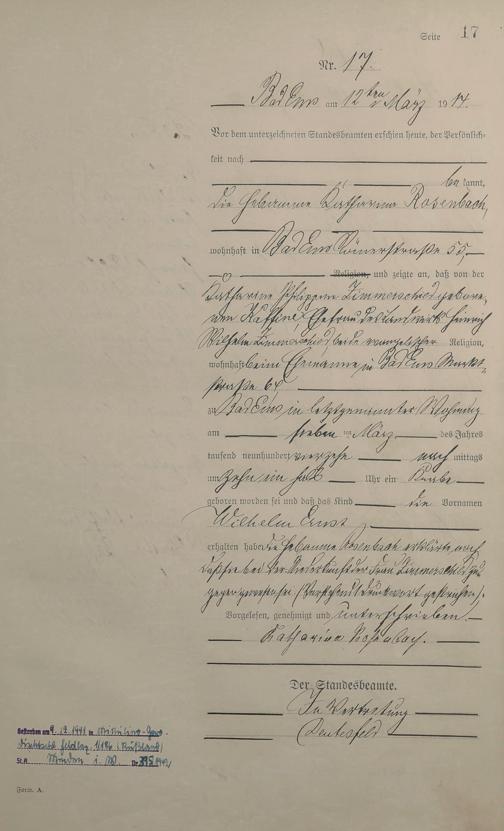 Seite 17
Nr. 17.
Bad Ems am 12ten März 1914.
Vor dem unterzeichneten Standesbeamten erschien heute, der Persönlich-
keit nach
bekannt,
die Hebamme Katharina Rosenbach,
wohnhaft in Bad Ems Römerstraße 55,
Religion, und zeigte an, daß von der
Katharine Philippine Zimmerschied gebore-
nen Ehefrau des Heinrich
Wilhelm Zimmerschied beide evangelischer Religion,
wohnhaft beim Ehemanne in Bad Ems Markt-
straße 64
zu Bad Ems in letztgenannter Wohnung
am sieben ten März des Jahres
tausend neunhundert vierzehn nach mittags
um zehn ein halb Uhr ein Knabe
geboren worden sei und daß das Kind die Vornamen
Wilhelm Ernst
erhalten habe. Die Hebamme Rosenbach erklärte noch
daß sie bei der Niederkunft der Frau Zimmerschied zu-
gegen gewesen sei.
Vorgelesen, genehmigt und unterschrieben.
Katharina Rosenbach.
Der Standesbeamte.
In Vertretung
Gestorben am 9.12.1941 in
Feldlaz. (Rußland)
St.A. Minden i. W. Nr 395/1942
Form. A.